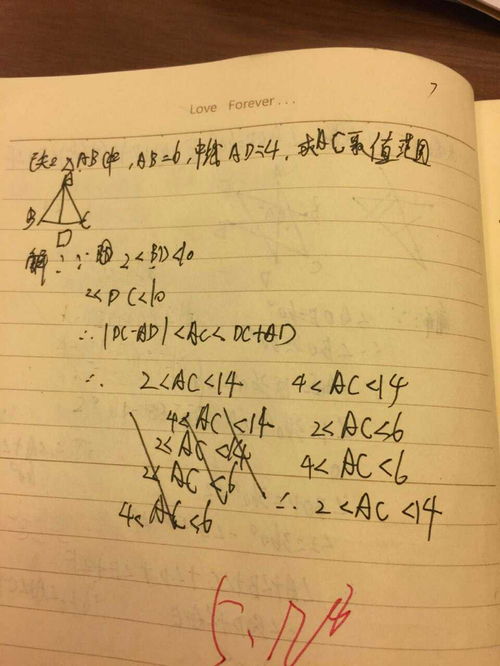 7
Love Forever...
已知△ABC中,AB=6,中线AD=4,求AC取值范围
A
B C
D
解:∵ 2<BD<10
2<DC<10
∴|DC-AD|<AC<DC+AD
∴ 2<AC<14 4<AC<14
4<AC<14 2<AC≤6
2<AC<14 4<AC<6
2<AC≤6 ∴ 2<AC<14
4<AC≤6